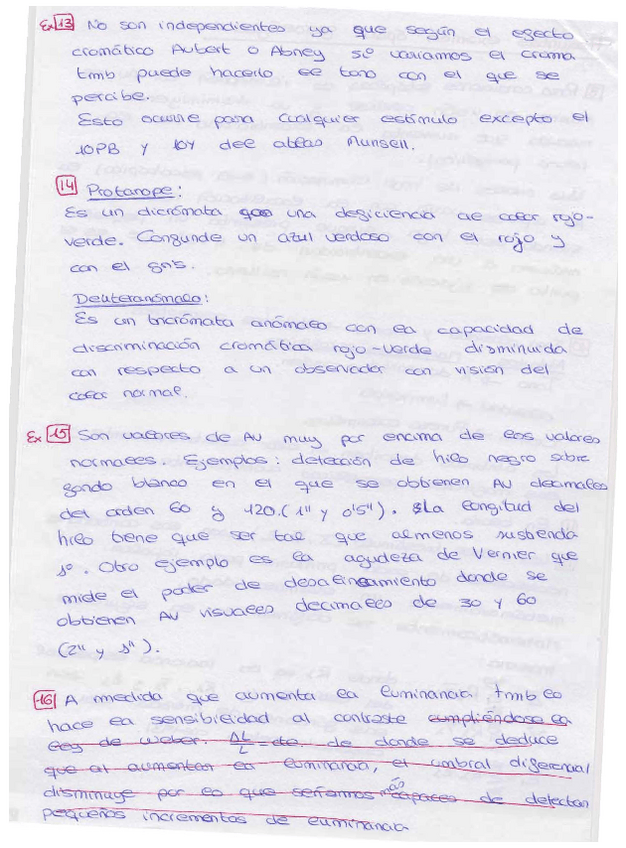 Ex 13 No son independientes ya que según el efecto
cromático Aubert o Abney si variamos el croma
tmb puede hacerlo el tono con el que se
percibe.
Esto ocurre para cualquier estímulo excepto el
10PB y 10Y del atlas Munsell.
14 Protanope:
Es un dicrómata con una deficiencia de color rojo-
verde. Confunde un azul verdoso con el rojo y
con el gris.
Deuteranómalo:
Es un tricrómata anómalo con la capacidad de
discriminación cromática rojo-verde disminuida
con respecto a un observador con visión del
color normal.
Ex 15 Son valores de AV muy por encima de los valores
normales. Ejemplos: detección de hilo negro sobre
fondo blanco en el que se obtienen AV decimales
del orden 60 y 120. (1" y 0'5"). La longitud del
hilo tiene que ser tal que almenos sustienda
1º. Otro ejemplo es la agudeza de Vernier que
mide el poder de desalineamiento donde se
obtienen AV visuales decimales de 30 y 60
(2" y 1").
16 A medida que aumenta la luminancia, tmb lo
hace la sensibilidad al contraste cumpliéndose la
ley de Weber. ΔL/L = cte. de donde se deduce
que al aumentar la luminancia, el umbral diferencial
disminuye por lo que seríamos más capaces de detectar
pequeños incrementos de luminancia